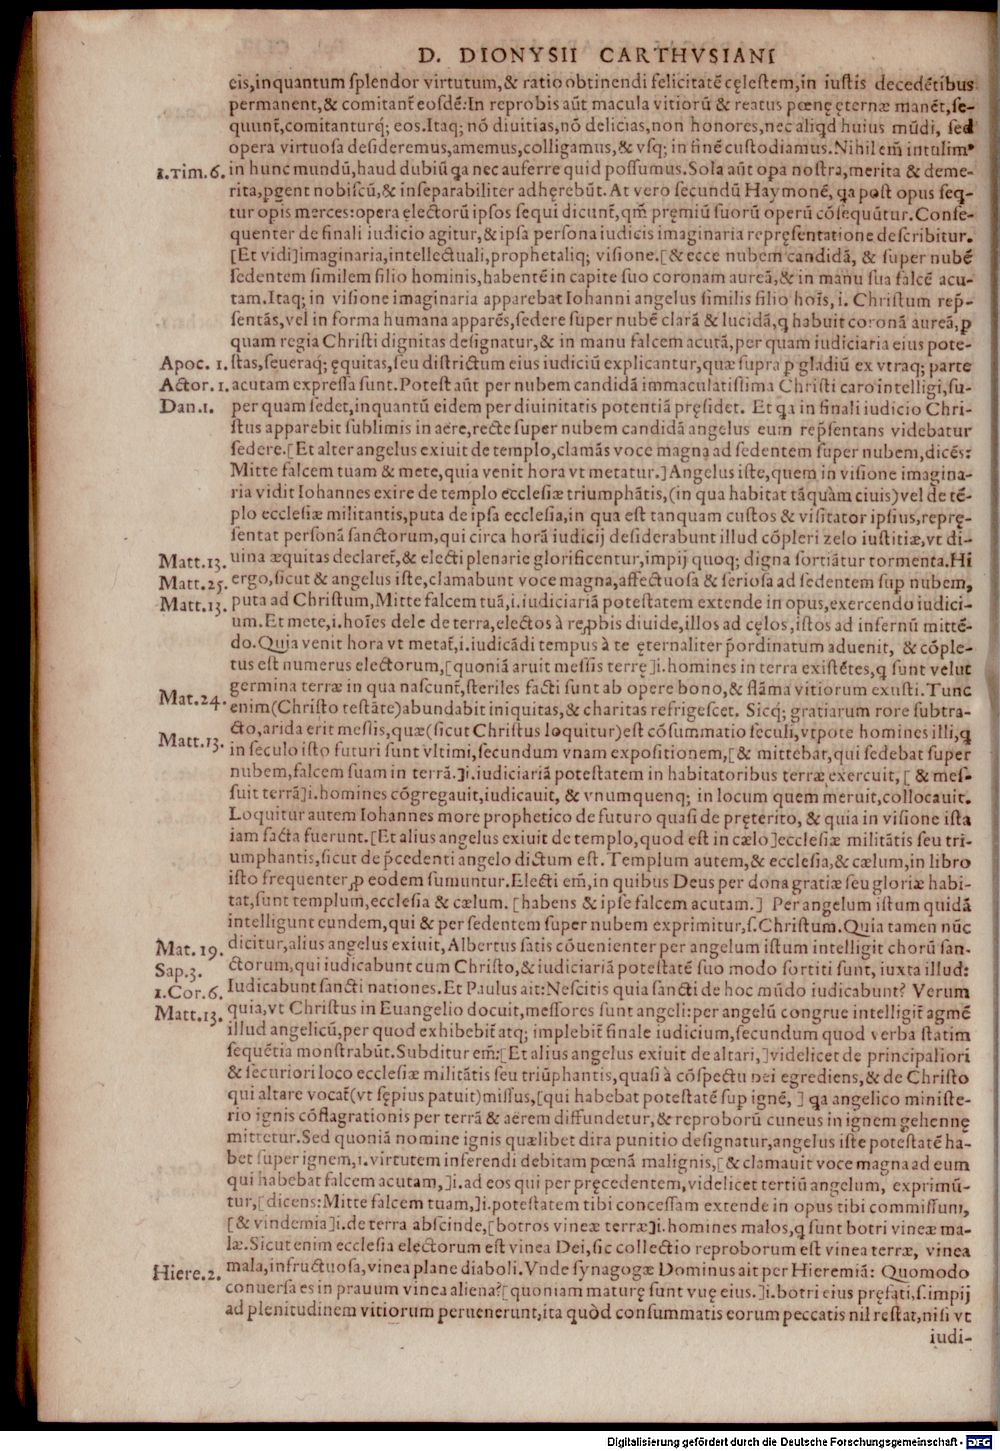 D. DIONYSII CARTHVSIANI
eis,inquantum splendor virtutum,& ratio obtinendi felicitatē cęlestem,in iustis decedētibus
permanent,& comitant̄ eosdē:In reprobis aūt macula vitiorū & reatus pœnę ęternæ manēt,se-
quunt̄,comitanturq́; eos.Itaq; nō diuitias,nō delicias,non honores,nec aliqd huius mūdi, sed
opera virtuosa desideremus,amemus,colligamus,& vsq; in finē custodiamus.Nihil em̄ intulim⁹
1.Tim.6. in hunc mundū,haud dubiū qa nec auferre quid possumus.Sola aūt opa nostra,merita & deme-
rita,pgent nobiscū,& inseparabiliter adhęrebūt.At vero secundū Haymonē, qa post opus seq-
tur opis merces:opera ęlectorū ipsos sequi dicunt̄,qm̄ pręmiū suorū operū cōsequūtur.Conse-
quenter de finali iudicio agitur,& ipsa persona iudicis imaginaria repręsentatione describitur.
[Et vidi]imaginaria,intellectuali,prophetaliq; visione.[& ecce nubem candidā, & super nubē
sedentem similem filio hominis,habentē in capite suo coronam aureā,& in manu sua falcē acu-
tam.Itaq; in visione imaginaria apparebat Iohanni angelus similis filio hoīs,i. Christum rep̄-
sentās,vel in forma humana apparēs,sedere super nubē clarā & lucidā,q habuit coronā aureā,p
quam regia Christi dignitas designatur,& in manu falcem acutā,per quam iudiciaria eius pote-
Apoc. 1. stas,seueraq; ęquitas,seu districtum eius iudiciū explicantur,quæ supra p gladiū ex vtraq; parte
Actor.1. acutam expressa sunt.Potest aūt per nubem candidā immaculatissima Christi caro intelligi,su-
Dan.1. per quam sedet,inquantū eidem per diuinitatis potentiā pręsidet. Et qa in finali iudicio Chri-
stus apparebit sublimis in aëre,recte super nubem candidā angelus eum rep̄sentans videbatur
sedere.[Et alter angelus exiuit de templo,clamās voce magna ad sedentem super nubem,dicēs:
Mitte falcem tuam & mete,quia venit hora vt metatur.]Angelus iste,quem in visione imagina-
ria vidit Iohannes exire de templo ecclesiæ triumphātis,(in qua habitat tāquàm ciuis)vel de tē-
plo ecclesiæ militantis,puta de ipsa ecclesia,in qua est tanquam custos & visitator ipsius,reprę-
sentat personā sanctorum,qui circa horā iudicij desiderabunt illud cōpleri zelo iustitiæ,vt di-
Matt.13. uina æquitas declaret̄,& electi plenarie glorificentur,impij quoq; digna sortiātur tormenta.Hi
Matt.25. ergo,sicut & angelus iste,clamabunt voce magna,affectuosa & seriosa ad sedentem sup nubem,
Matt.13. puta ad Christum,Mitte falcem tuā,i.iudiciariā potestatem extende in opus,exercendo iudici-
um.Et mete,i.hoīes dele de terra,electos à repbis diuide,illos ad cęlos,istos ad infernū mittē-
do.Quia venit hora vt metat̄,i.iudicādi tempus à te ęternaliter p̄ordinatum aduenit, & cōple-
tus est numerus electorum,[quoniā aruit messis terrę]i.homines in terra existētes,q sunt velut
germina terræ in qua nascunt̄,steriles facti sunt ab opere bono,& flāma vitiorum exusti.Tunc
Mat.24. enim(Christo testāte)abundabit iniquitas,& charitas refrigescet. Sicq́; gratiarum rore subtra-
cto,arida erit messis,quæ(sicut Christus loquitur)est cōsummatio seculi,vtpote homines illi,q
Matt.13. in seculo isto futuri sunt vltimi,secundum vnam expositionem,[& mittebat,qui sedebat super
nubem,falcem suam in terrā.]i.iudiciariā potestatem in habitatoribus terræ exercuit,[ & mes-
suit terrā]i.homines cōgregauit,iudicauit, & vnumquenq; in locum quem meruit,collocauit.
Loquitur autem Iohannes more prophetico de futuro quasi de pręterito, & quia in visione ista
iam facta fuerunt.[Et alius angelus exiuit de templo,quod est in cælo]ecclesiæ militātis seu tri-
umphantis,sicut de p̄cedenti angelo dictum est.Templum autem,& ecclesia,& cælum,in libro
isto frequenter,p eodem sumuntur.Electi em̄,in quibus Deus per dona gratiæ seu gloriæ habi-
tat,sunt templum,ecclesia & cælum. [habens & ipse falcem acutam.] Per angelum istum quidā
intelligunt eundem,qui & per sedentem super nubem exprimitur,s.Christum.Quia tamen nūc
Mat. 19. dicitur,alius angelus exiuit,Albertus satis cōuenienter per angelum istum intelligit chorū san-
Sap.3. ctorum,qui iudicabunt cum Christo,& iudiciariā potestatē suo modo sortiti sunt, iuxta illud:
1.Cor.6. Iudicabunt sancti nationes.Et Paulus ait:Nescitis quia sancti de hoc mūdo iudicabunt? Verum
Matt.13. quia,vt Christus in Euangelio docuit,messores sunt angeli:per angelū congrue intelligit̄ agmē
illud angelicū,per quod exhibebit̄ atq; implebit̄ finale iudicium,secundum quod verba statim
sequētia monstrabūt.Subditur em̄:[Et alius angelus exiuit de altari,]videlicet de principaliori
& securiori loco ecclesiæ militātis seu triūphantis,quasi à cōspectu Dei egrediens,& de Christo
qui altare vocat̄(vt sępius patuit)missus,[qui habebat potestatē sup ignē, ] qa angelico ministe-
rio ignis cōflagrationis per terrā & aërem diffundetur,& reproborū cuneus in ignem gehennę
mittetur.Sed quoniā nomine ignis quælibet dira punitio designatur,angelus iste potestatē ha-
bet super ignem,i.virtutem inferendi debitam pœnā malignis,[& clamauit voce magna ad eum
qui habebat falcem acutam,]i.ad eos qui per pręcedentem,videlicet tertiū angelum, exprimū-
tur,[dicens:Mitte falcem tuam,]i.potestatem tibi concessam extende in opus tibi commissum,
[& vindemia]i.de terra abscinde,[botros vineæ terræ]i.homines malos,q sunt botri vineæ ma-
læ.Sicut enim ecclesia electorum est vinea Dei,sic collectio reproborum est vinea terræ, vinea
Hiere.2. mala,infructuosa,vinea plane diaboli.Vnde synagogæ Dominus ait per Hieremiā: Quomodo
conuersa es in prauum vinea aliena?[quoniam maturę sunt vuę eius.]i.botri eius pręfati,s.impij
ad plenitudinem vitiorum peruenerunt,ita quòd consummatis eorum peccatis nil restat,nisi vt
iudi-
Digitalisierung gefördert durch die Deutsche Forschungsgemeinschaft - DFG